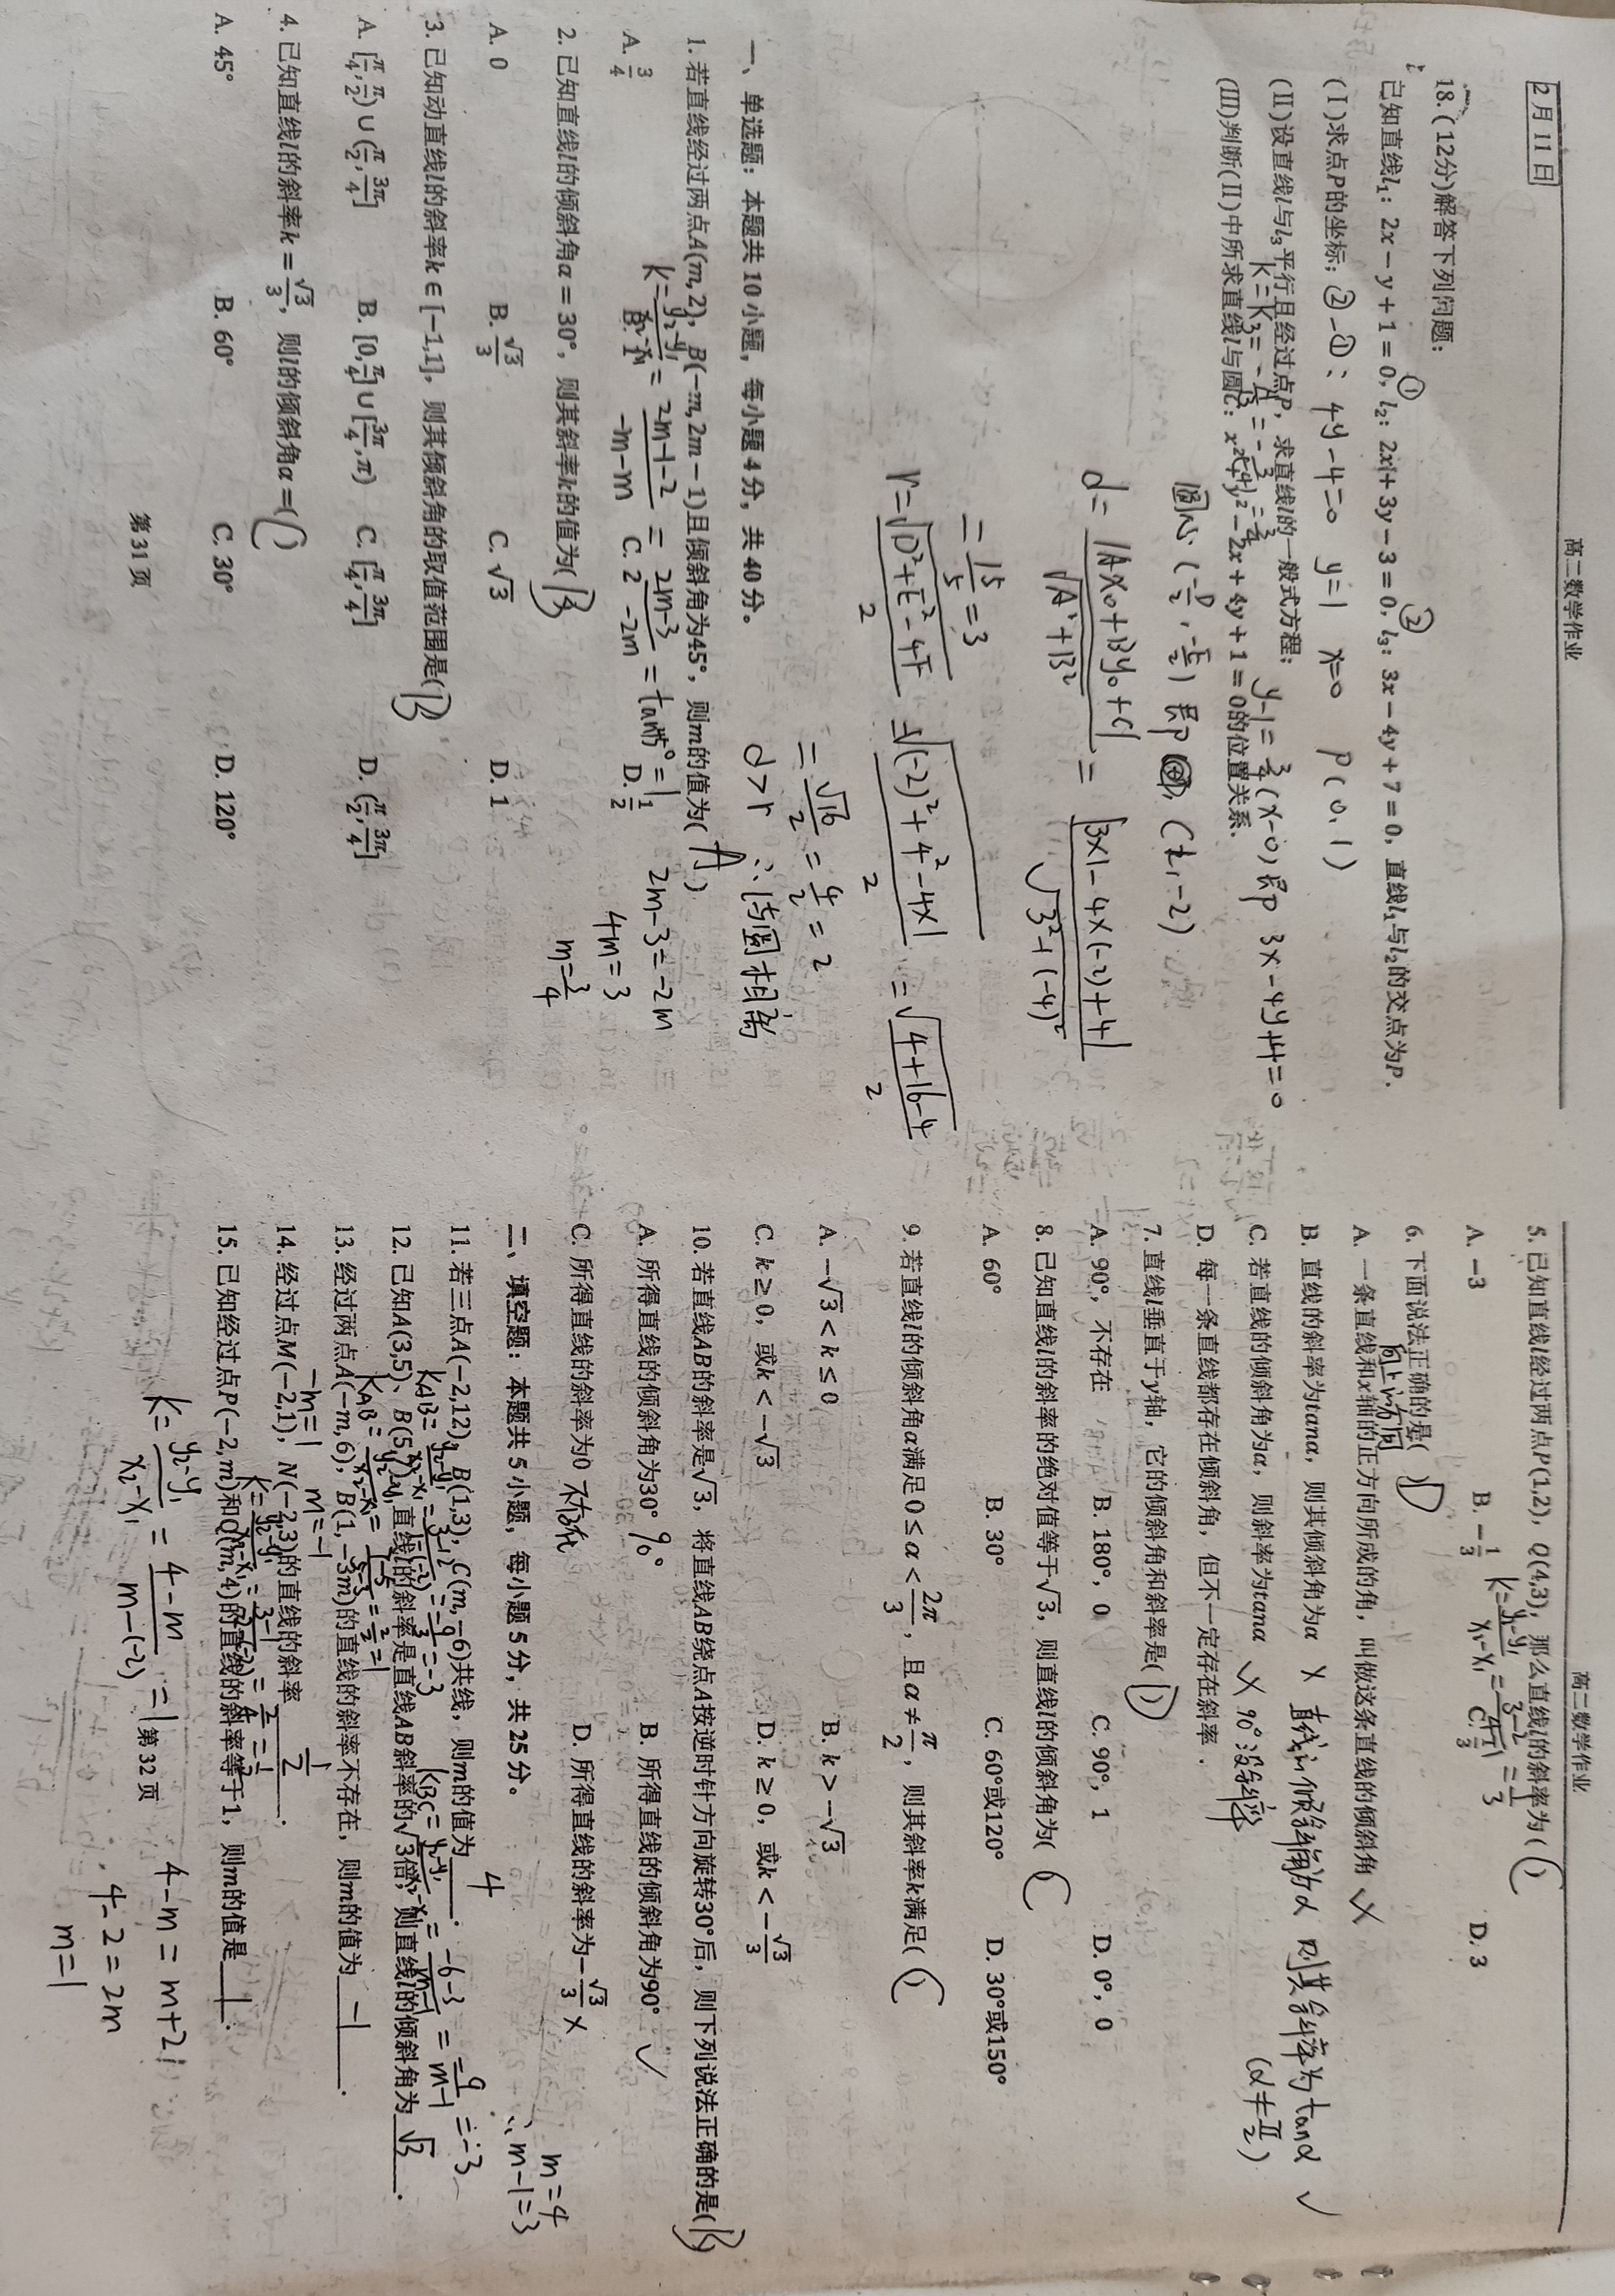 高二数学作业
2月11日
18. (12分)解答下列问题：
已知直线l₁：2x－y＋1＝0，l₂：2x＋3y－3＝0，l₃：3x－4y＋7＝0，直线l₁与l₂的交点为P.
① ②
(Ⅰ)求点P的坐标；②-①：4y-4=0 y=1 x=0 P(0,1)
(Ⅱ)设直线l与l₃平行且经过点P，求直线l的一般式方程；y-1=3/4(x-0)，即 3x-4y+4=0
(Ⅲ)判断(Ⅱ)中所求直线l与圆C：x²＋y²－2x＋4y＋1＝0的位置关系.
圆心(-D/2, -E/2) 即 (1,-2)
d=|Ax₀+By₀+C|/√A²+B² = |3×1-4×(-2)+4|/√3²+(-4)²
=15/5=3
r=√D²+E²-4F/2 =√(-2)²+4²-4×1/2 =√4+16-4/2
=√16/2=4/2=2
d>r ∴l与圆相离
一、单选题：本题共10小题，每小题4分，共40分。
1. 若直线经过两点A(m,2)，B(−m,2m−1)且倾斜角为45°，则m的值为(A)
A. 3/4 B. 1 C. 2 D. 1/2
k=y₂-y₁/x₂-x₁=2m-1-2/-m-m=2m-3/-2m=tan45°=1
2m-3=-2m
4m=3
m=3/4
2. 已知直线l的倾斜角α＝30°，则其斜率k的值为(B)
A. 0 B. √3/3 C. √3 D. 1
3. 已知动直线l的斜率k∈[−1,1]，则其倾斜角的取值范围是(B)
A. [π/4,π/2)∪(π/2,3π/4] B. [0,π/4]∪[3π/4,π) C. [π/4,3π/4] D. (π/2,3π/4]
4. 已知直线l的斜率k＝√3/3，则l的倾斜角α＝(C)
A. 45° B. 60° C. 30° D. 120°
第31页
高二数学作业
5. 已知直线l经过两点P(1,2)，Q(4,3)，那么直线l的斜率为(C)
A. −3 B. −1/3 C. 1/3 D. 3
k=y₂-y₁/x₂-x₁=3-2/4-1=1/3
6. 下面说法正确的是(D)
向上的方向
A. 一条直线和x轴的正方向所成的角，叫做这条直线的倾斜角 ×
B. 直线的斜率为tanα，则其倾斜角为α × 直线的倾斜角为α 则其斜率为tanα ✓
(α≠π/2)
C. 若直线的倾斜角为α，则斜率为tanα × 90°没斜率
D. 每一条直线都存在倾斜角，但不一定存在斜率.
7. 直线l垂直于y轴，它的倾斜角和斜率是(D)
A. 90°，不存在 B. 180°，0 C. 90°，1 D. 0°，0
8. 已知直线l的斜率的绝对值等于√3，则直线l的倾斜角为(C)
A. 60° B. 30° C. 60°或120° D. 30°或150°
9. 若直线l的倾斜角α满足0≤α<2π/3，且α≠π/2，则其斜率k满足(C)
A. −√3<k≤0 B. k>−√3
C. k≥0，或k<−√3 D. k≥0，或k<−√3/3
10. 若直线AB的斜率是√3，将直线AB绕点A按逆时针方向旋转30°后，则下列说法正确的是(B)
A. 所得直线的倾斜角为30° 90° B. 所得直线的倾斜角为90° ✓
C. 所得直线的斜率为0 不存在 D. 所得直线的斜率为−√3/3 ×
二、填空题：本题共5小题，每小题5分，共25分。
11. 若三点A(−2,12)，B(1,3)，C(m,−6)共线，则m的值为 4 .
kAB=y₂-y₁/x₂-x₁=3-12/1-(-2)=-9/3=-3 kBC=y₂-y₁/x₂-x₁=-6-3/m-1=-9/m-1=-3
∴m-1=3
m=4
12. 已知A(3,5)、B(5,7)，直线l的斜率是直线AB斜率的√3倍，则直线l的倾斜角为 √3 .
kAB=y₂-y₁/x₂-x₁=7-5/5-3=2/2=1
13. 经过两点A(−m,6)，B(1,−3m)的直线的斜率不存在，则m的值为 -1 .
-m=1 m=-1
14. 经过点M(−2,1)，N(−2,3)的直线的斜率 .
15. 已知经过点P(−2,m)和Q(m,4)的直线的斜率等于1，则m的值是 1 .
k=y₂-y₁/x₂-x₁=4-m/m-(-2)=1
4-m=m+2
4-2=2m
m=1
第32页